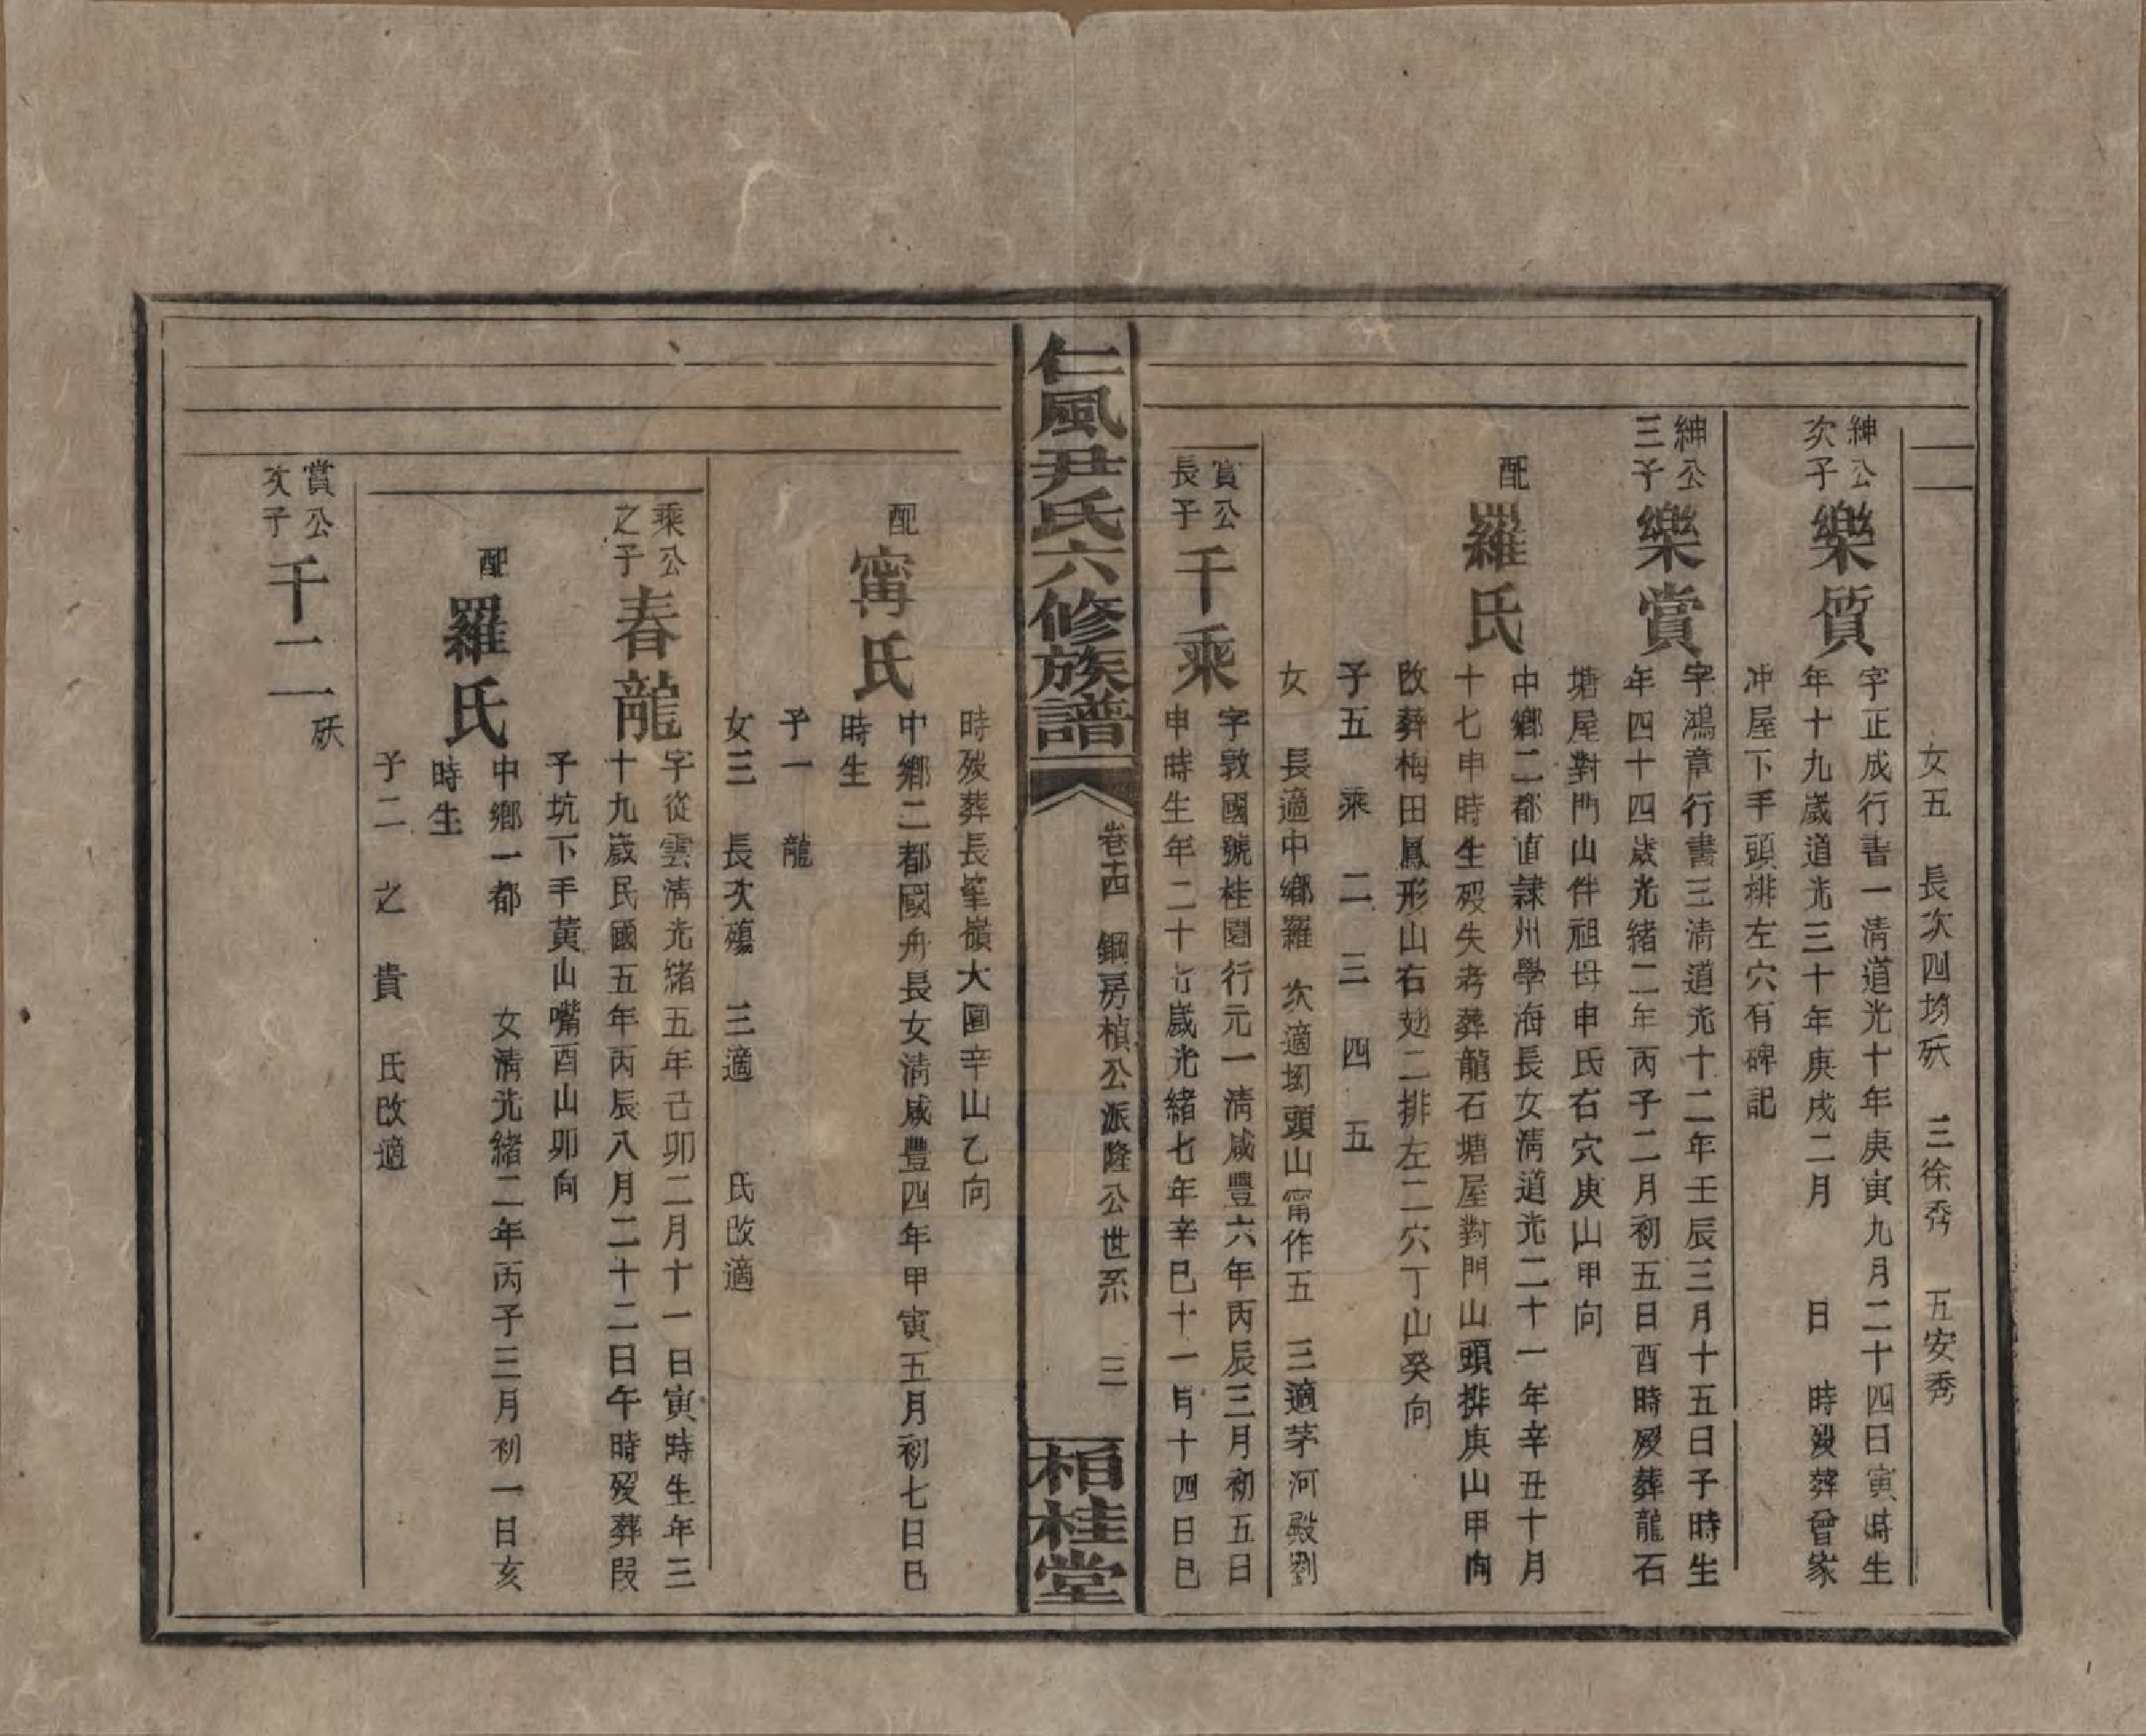 女五 長次四均殀 三徐秀 五安秀
紳公
次子
樂質
字正成行書一清道光十年庚寅九月二十四日寅時生
年十九歲道光三十年庚戌二月 日 時歿葬曾家
冲屋下手頭排左穴有碑記
紳公
三子
樂賞
字鴻章行書三清道光十二年壬辰三月十五日子時生
年四十四歲光緒二年丙子二月初五日酉時歿葬龍石
塘屋對門山伴祖母申氏右穴庚山甲向
配
羅氏
中鄉二都直隸州學海長女清道光二十一年辛丑十月
十七申時生歿失考葬龍石塘屋對門山頭排庚山甲向
改葬梅田鳳形山右翅二排左二穴丁山癸向
子五 乘 二 三 四 五
女 長適中鄉羅 次適坳頭山甯作五 三適茅河殿劉
賞公
長子
千乘
字敦國號桂園行元一清咸豐六年丙辰三月初五日
申時生年二十六歲光緒七年辛巳十一月十四日巳
仁風尹氏六修族譜
卷十四 鋼房楨公派隆公世系 三
柏桂堂
時歿葬長塋嶺大圍辛山乙向
配
甯氏
中鄉二都國舟長女清咸豐四年甲寅五月初七日巳
時生
子一 龍
女三 長次殤 三適 氏改適
乘公
之子
春龍
字從雲清光緒五年己卯二月十一日寅時生年三
十九歲民國五年丙辰八月二十二日午時歿葬段
子坑下手黃山嘴酉山卯向
配
羅氏
中鄉一都 女清光緒二年丙子三月初一日亥
時生
子二 之 貴 氏改適
賞公
次子
千二
殀